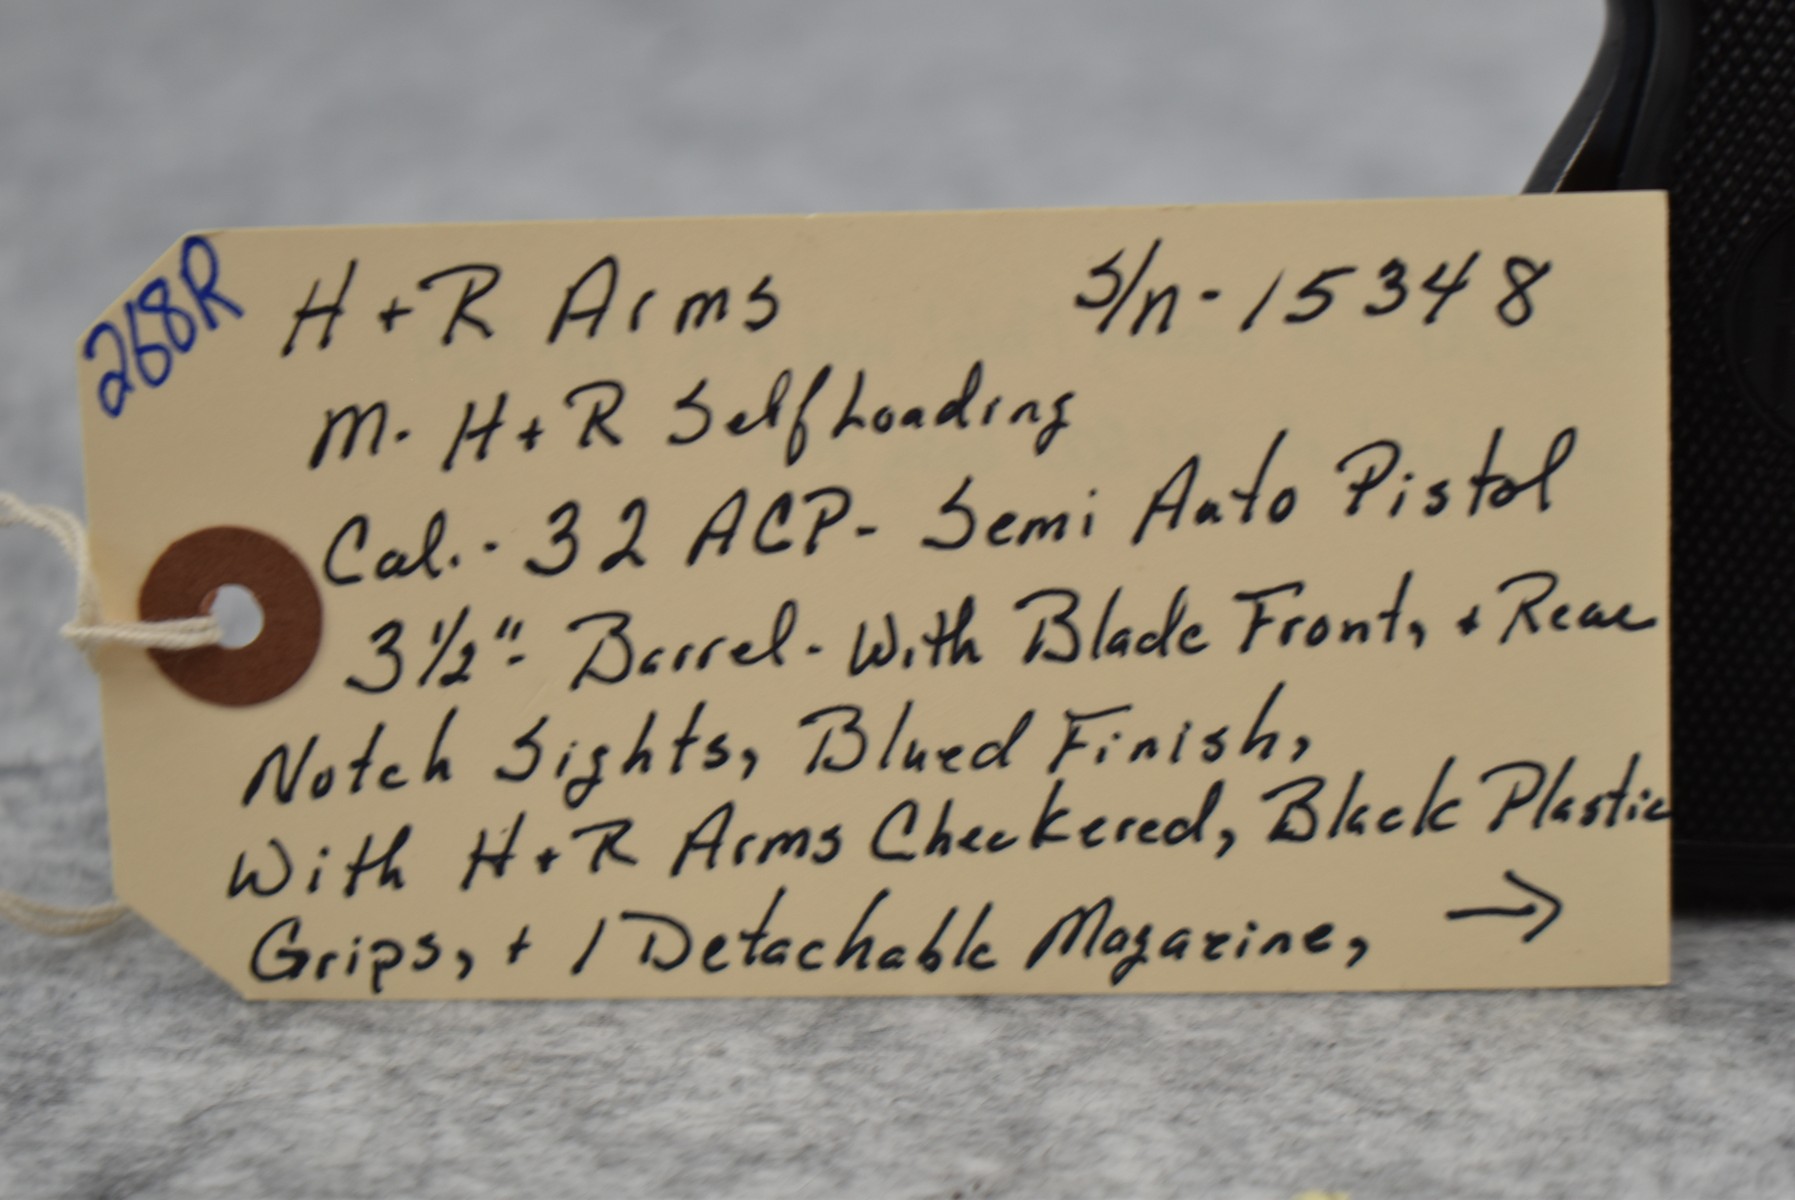 268R
H + R Arms S/n - 15348
M. H + R Self Loading
Cal. - 32 ACP - Semi Auto Pistol
3 1/2" - Barrel - With Blade Front, + Rear
Notch Sights, Blued Finish,
With H + R Arms Checkered, Black Plastic
Grips, + 1 Detachable Magazine, →